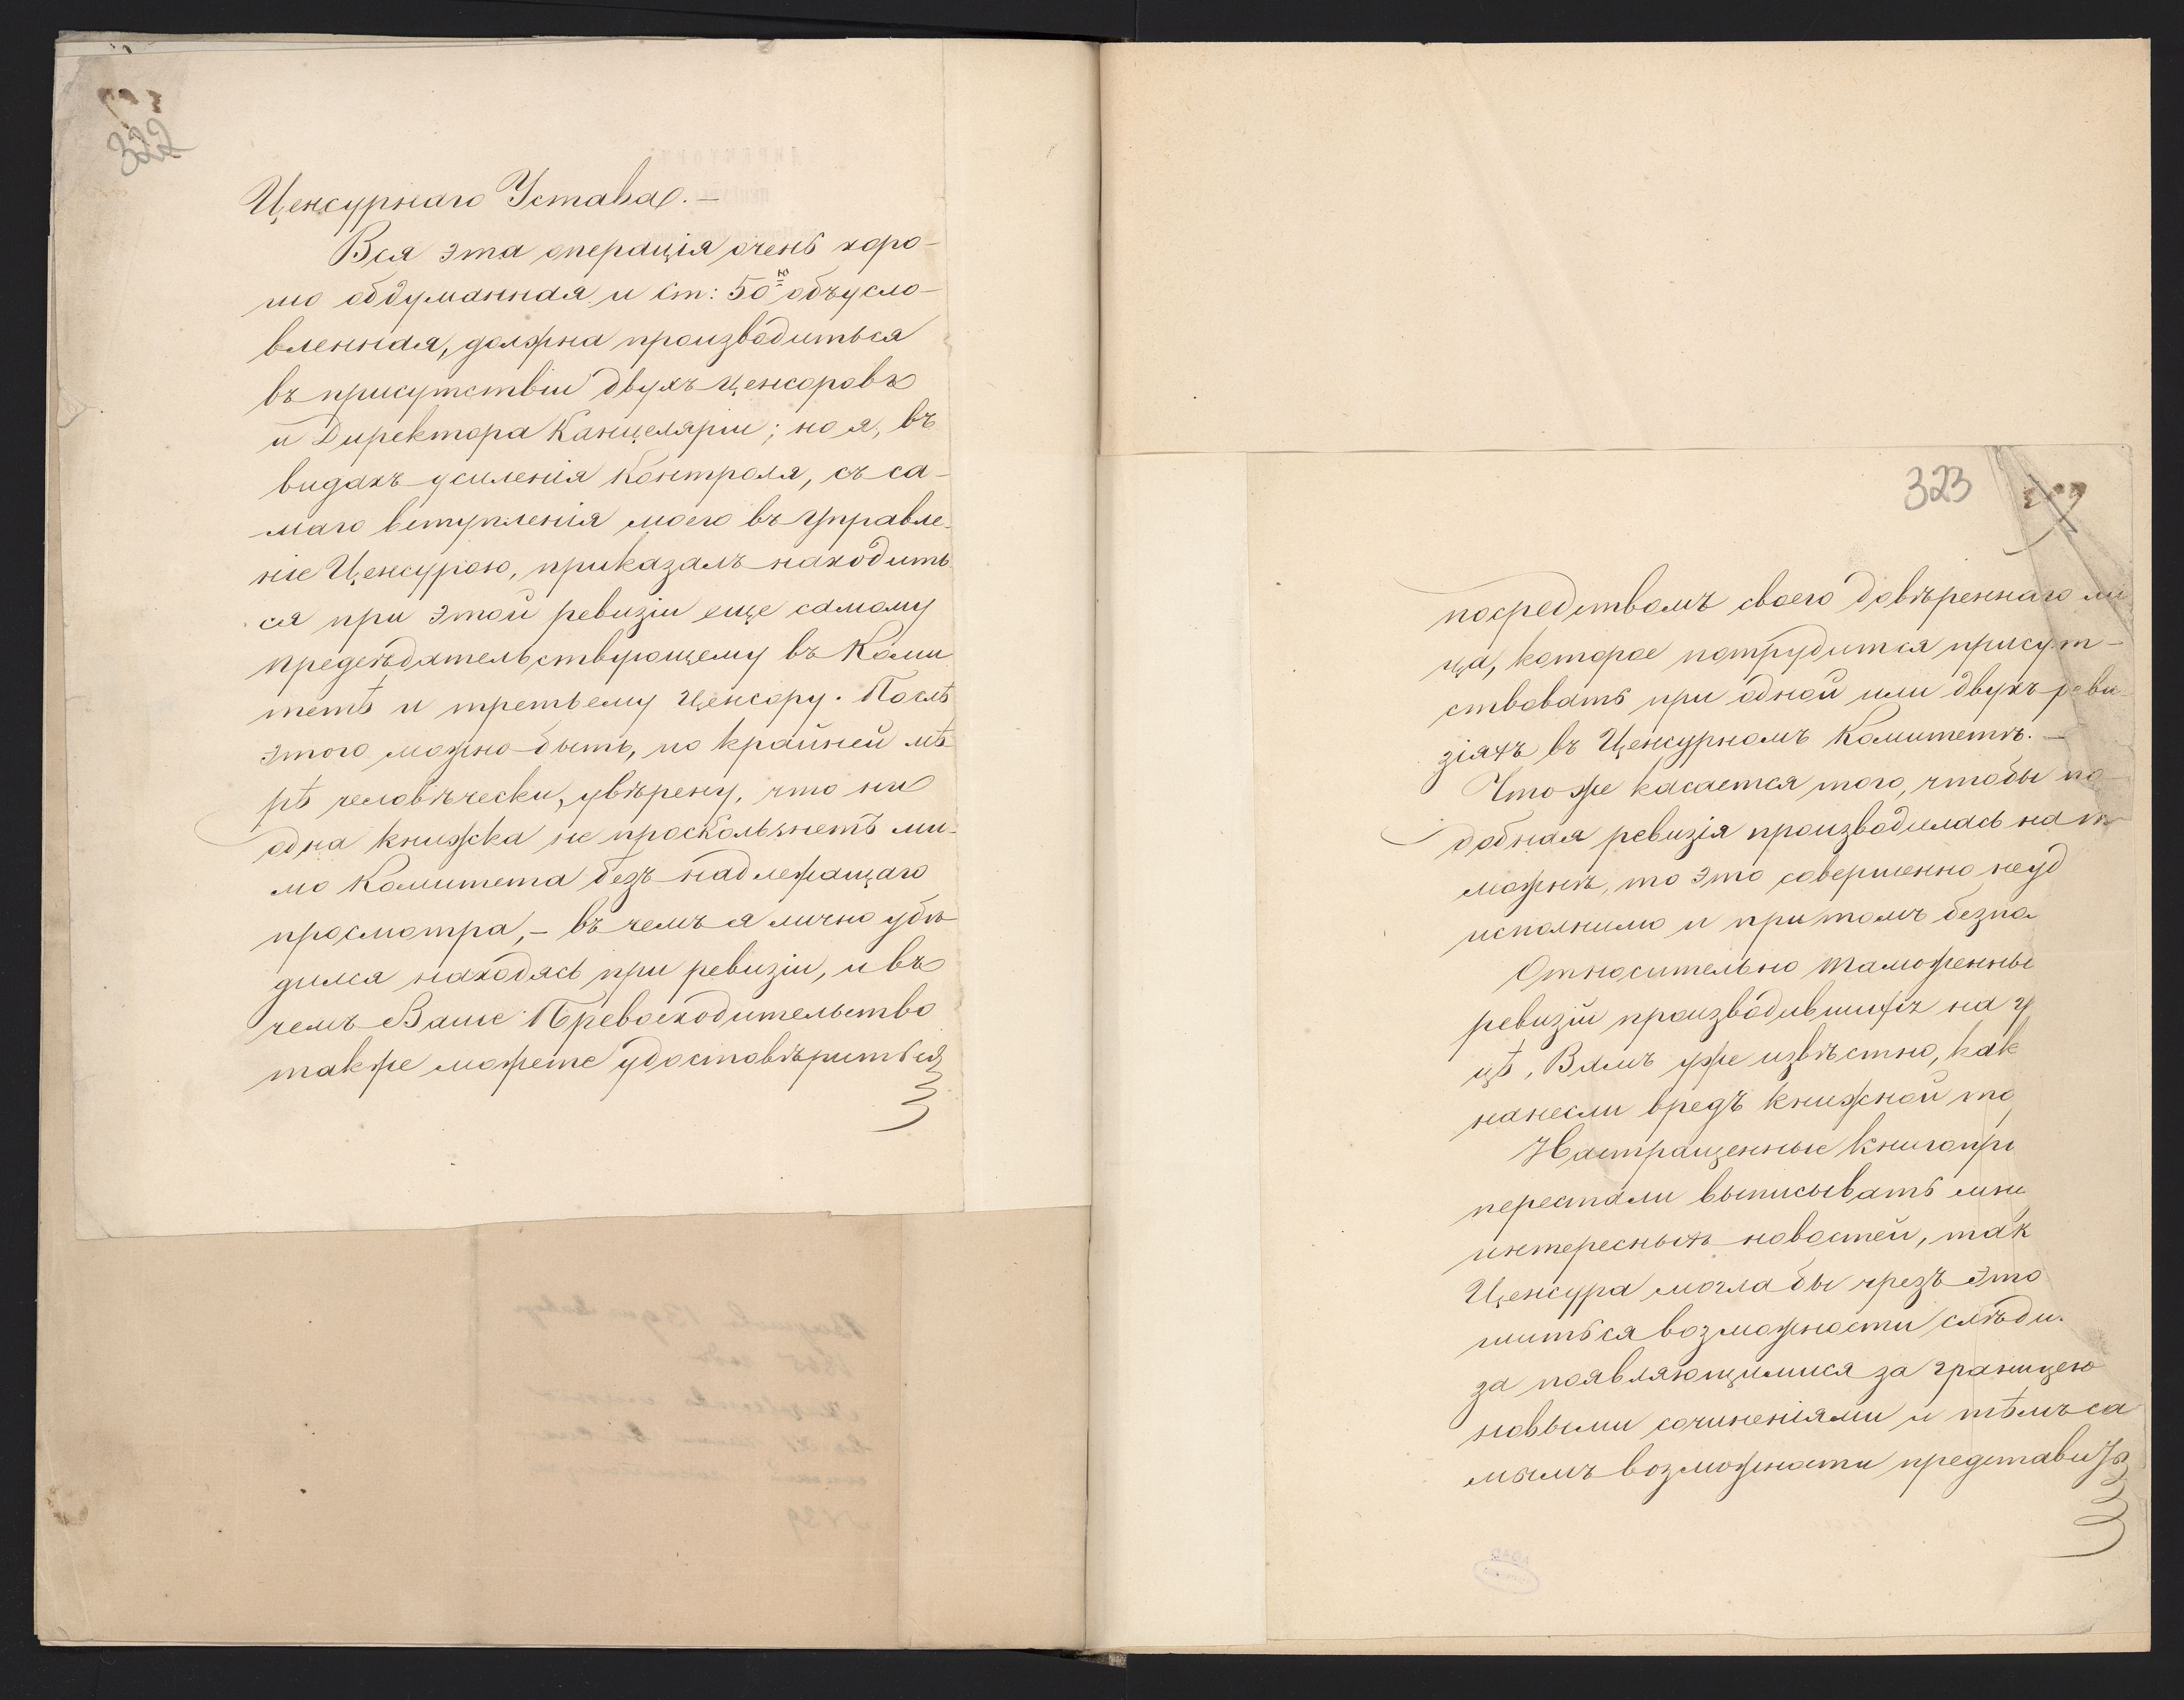 322
Ценсурнаго Устава. —
Вся эта операція очень хоро-
шо обдуманная и ст: 50ю объусло-
вленная, должна производиться
въ присутствіи двухъ Ценсоровъ
и Директора Канцеляріи; но я, въ
видахъ усиленія контроля, съ са-
маго вступленія моего въ Управле-
ніе Ценсурою, приказалъ находить-
ся при этой ревизіи еще самому
предсѣдательствующему въ Коми
тетѣ и третьему Ценсору. Послѣ
этого можно быть, по крайней мѣ
рѣ человѣчески, увѣрену, что ни
одна книжка не проскользнетъ ми-
мо Комитета безъ надлежащаго
просмотра, — въ чемъ я лично убѣ-
дился находясь при ревизіи, и въ
чемъ Ваше Превосходительство
также можете удостовѣриться
323
посредствомъ своего довѣреннаго ли
ца, которое потрудится присут-
ствовать при одной или двухъ реви
зіяхъ въ Ценсурномъ Комитетѣ. —
Что же касается того, чтобы по
добная ревизія производилась на т
можнѣ, то это совершенно неуд
исполнимо и притомъ безпо
Относительно таможенны
ревизій производившихъ на г
цѣ, Вамъ уже извѣстно, как
нанесли вредъ книжной то
Настращенные книгопр
перестали выписывать мн
интересныхъ новостей, так
Ценсура могла бы чрезъ это
шиться возможности слѣди.
за появляющимися за границею
новыми сочиненіями и тѣмъ са
мымъ возможности представить